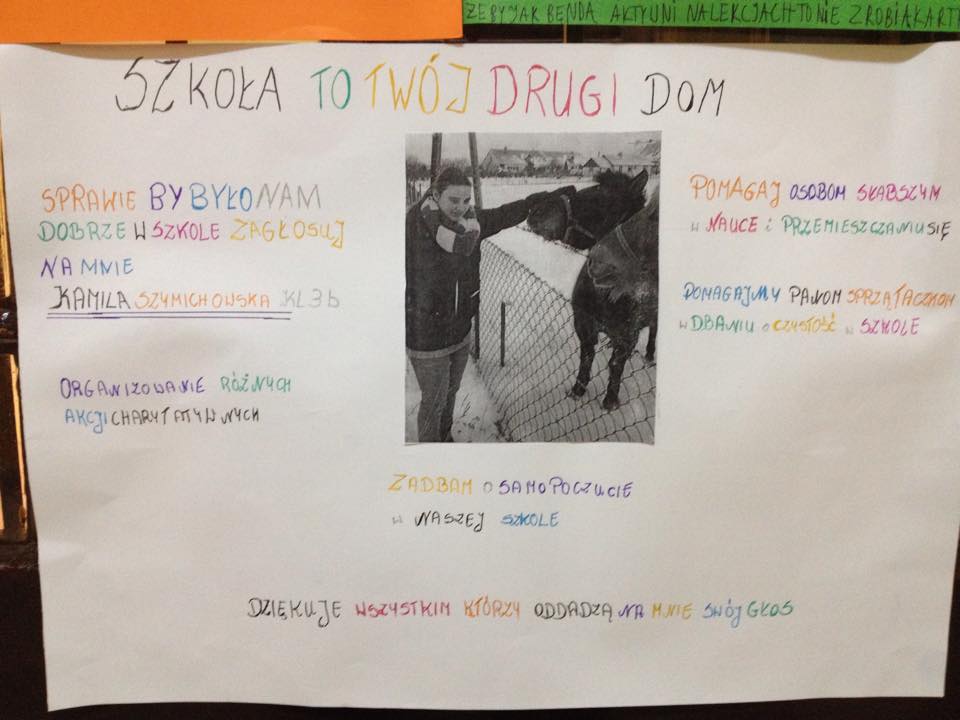 ŻEBY JAK BENDĄ AKTYUNI NA LEKCJACH-TO NIE ZROBIĄ KART
SZKOŁA TO TWÓJ DRUGI DOM
SPRAWIE BY BYŁO NAM
DOBRZE W SZKOLE ZAGŁOSUJ
NA MNIE
KAMILA SZYMICHOWSKA KL3b
ORGANIZOWANIE RÓŻNYCH
AKCJI CHARYTATYWNYCH
POMAGAJ OSOBOM SŁABSZYM
W NAUCE i PRZEMIESZCZANIU SIĘ
POMAGAJMY PANOM SPRZĄTACZKOM
W DBANIU O CZYSTOŚĆ W SZKOLE
ZADBAM O SAMOPOCZUCIE
W NASZEJ SZKOLE
DZIĘKUJE WSZYSTKIM KTÓRZY ODDADZĄ NA MNIE SWÓJ GŁOS